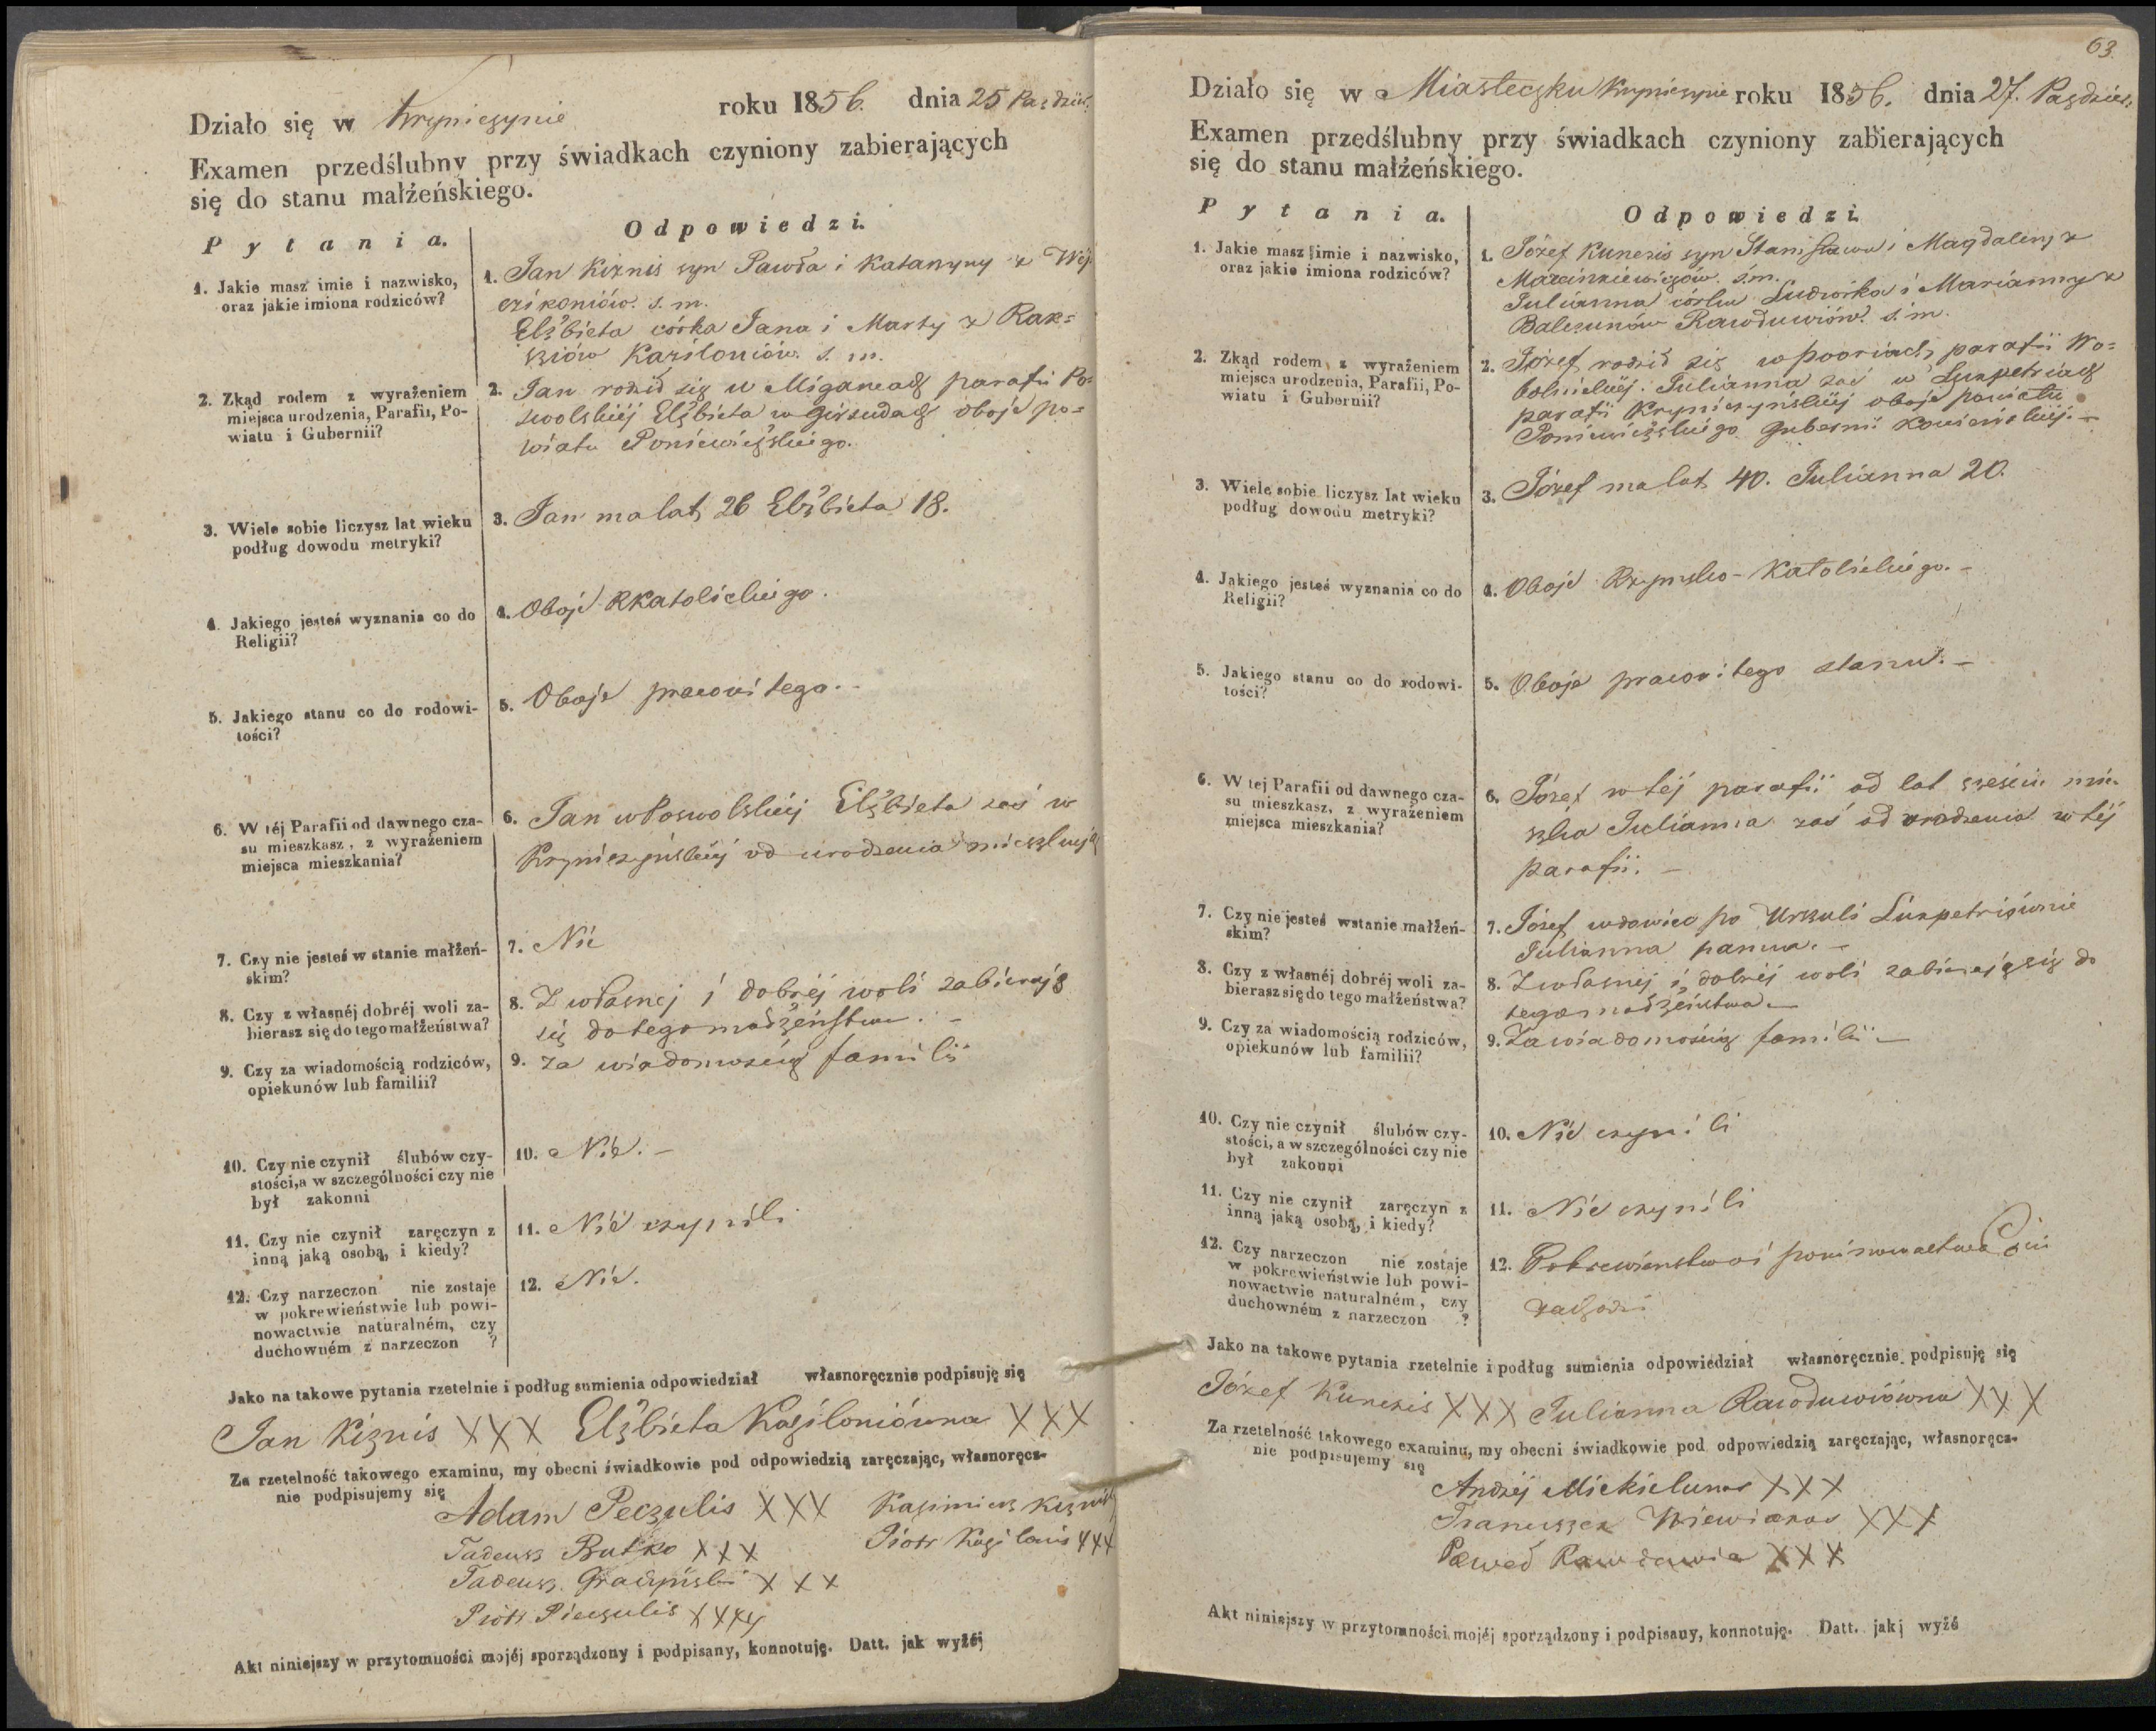 Działo się w Kryniczynie roku 1856. dnia 25 Paździer.
Examen przedślubny przy świadkach czyniony zabierających
się do stanu małżeńskiego.
Pytania.
Odpowiedzi.
1. Jakie masz imie i nazwisko,
oraz jakie imiona rodziców?
1. Jan Kiznis syn Pawła i Katarzyny z
s. m.
Elżbieta córka Jana i Marty z Rak=
sziów Kaziloniów. s. m.
2. Zkąd rodem z wyrażeniem
miejsca urodzenia, Parafii, Po-
wiatu i Gubernii?
2. Jan rodził się w Migancach parafii Po-
swolskiéj Elżbieta w Girsudach oboje po=
wiatu Poniewieżskiego.
3. Wiele sobie liczysz lat wieku
podług dowodu metryki?
3. Jan ma lat 26 Elżbieta 18.
4. Jakiego jesteś wyznania co do
Religii?
4. Oboje RKatolickiego.
5. Jakiego stanu co do rodowi-
tości?
5. Oboje pracowitego. -
6. W téj Parafii od dawnego cza-
su mieszkasz, z wyrażeniem
miejsca mieszkania?
6. Jan w Poswolskiéj Elżbieta zaś w
Kryniczyńskiéj od urodzenia mieszkują
7. Czy nie jesteś w stanie małżeń-
skim?
7. Nie
8. Czy z własnéj dobréj woli za-
bierasz się do tego małżeństwa?
8. Z własnej i dobréj woli zabierają
się do tego małżeństwa. -
9. Czy za wiadomością rodziców,
opiekunów lub familii?
9. Za wiadomością familii
10. Czy nie czynił ślubów czy-
stości, a w szczególności czy nie
był zakonni
10. Nie. -
11. Czy nie czynił zaręczyn z
inną jaką osobą, i kiedy?
11. Nie czynili
12. Czy narzeczon nie zostaje
w pokrewieństwie lub powi-
nowactwie naturalném, czy
duchowném z narzeczon ?
12. Nie.
Jako na takowe pytania rzetelnie i podług sumienia odpowiedział własnoręcznie podpisuję się
Jan Kiznis XXX Elżbieta Kaziloniówna XXX
Za rzetelność takowego examinu, my obecni świadkowie pod odpowiedzią zaręczając, własnoręcz-
nie podpisujemy się
Adam Peczulis XXX Kazimierz Kiznis
Tadeusz Butko XXX Piotr Kazilonis XXX
Tadeusz XXX
Piotr Pieczulis XXXX
Akt niniejszy w przytomności mojéj sporządzony i podpisany, konnotuję. Datt. jak wyżéj
63.
Działo się w Miasteczku Kryniczynie roku 1856. dnia 27. Paździer.
Examen przedślubny przy świadkach czyniony zabierających
się do stanu małżeńskiego.
Pytania.
Odpowiedzi.
1. Jakie masz imie i nazwisko,
oraz jakie imiona rodziców?
1. Józef Kunczis syn Stanisława i Magdaleny z
Marcinkiewiczów. s.m.
Julianna córka Ludwika i Marianny z
Balczunów Rawduwiów. s. m.
2. Zkąd rodem z wyrażeniem
miejsca urodzenia, Parafii, Po-
wiatu i Gubernii?
2. Józef rodził się w parafii Wo=
bolnickiéj. Julianna zaś w Lukpetriach
parafii Kryniczyńskiéj oboje powiatu
Poniewieżskiego Gubernii Kowieńskiéj. -
3. Wiele sobie liczysz lat wieku
podług dowodu metryki?
3. Józef ma lat 40. Julianna 20.
4. Jakiego jesteś wyznania co do
Religii?
4. Oboje Rzymsko-Katolickiego. -
5. Jakiego stanu co do rodowi-
tości?
5. Oboje pracowitego stanu. -
6. W tej Parafii od dawnego cza-
su mieszkasz, z wyrażeniem
miejsca mieszkania?
6. Józef w téj parafii od lat sześciu mie-
szka Julianna zaś od urodzenia w téj
parafii. -
7. Czy nie jesteś w stanie małżeń-
skim?
7. Józef wdowiec po Urszuli Lukpetriównie
Julianna panna. -
8. Czy z własnéj dobréj woli za-
bierasz się do tego małżeństwa?
8. Z własnej i dobréj woli zabierają się do
tego małżeństwa -
9. Czy za wiadomością rodziców,
opiekunów lub familii?
9. Za wiadomością familii -
10. Czy nie czynił ślubów czy-
stości, a w szczególności czy nie
był zakonni
10. Nie czynili
11. Czy nie czynił zaręczyn z
inną jaką osobą, i kiedy?
11. Nie czynili
12. Czy narzeczon nie zostaje
w pokrewieństwie lub powi-
nowactwie naturalném, czy
duchowném z narzeczon ?
12. Pokrewieństwo i powinowactwo nie
zachodzi
Jako na takowe pytania rzetelnie i podług sumienia odpowiedział własnoręcznie podpisuję się
Józef Kunczis XXX Julianna Rawduwiówna XXX
Za rzetelność takowego examinu, my obecni świadkowie pod odpowiedzią zaręczając, własnoręcz-
nie podpisujemy się
Andrzéj Mickielunas XXX
Franciszek Wiewiaras XXX
Paweł XXX
Akt niniejszy w przytomności mojéj sporządzony i podpisany, konnotuję. Datt. jak wyżé